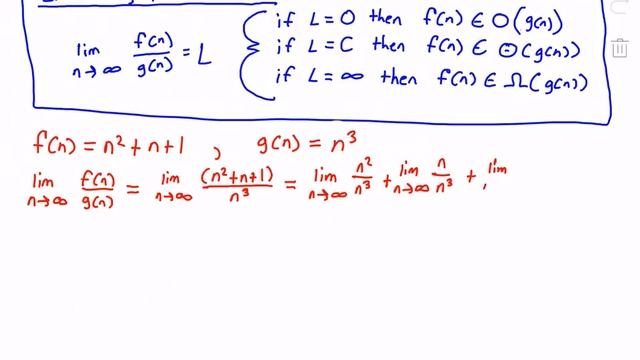 if L = 0 then f(n) ∈ O(g(n))
lim n→∞ f(n)/g(n) = L
if L = C then f(n) ∈ Θ(g(n))
if L = ∞ then f(n) ∈ Ω(g(n))
f(n) = n² + n + 1 , g(n) = n³
lim n→∞ f(n)/g(n) = lim n→∞ (n²+n+1)/n³ = lim n→∞ n²/n³ + lim n→∞ n/n³ + lim